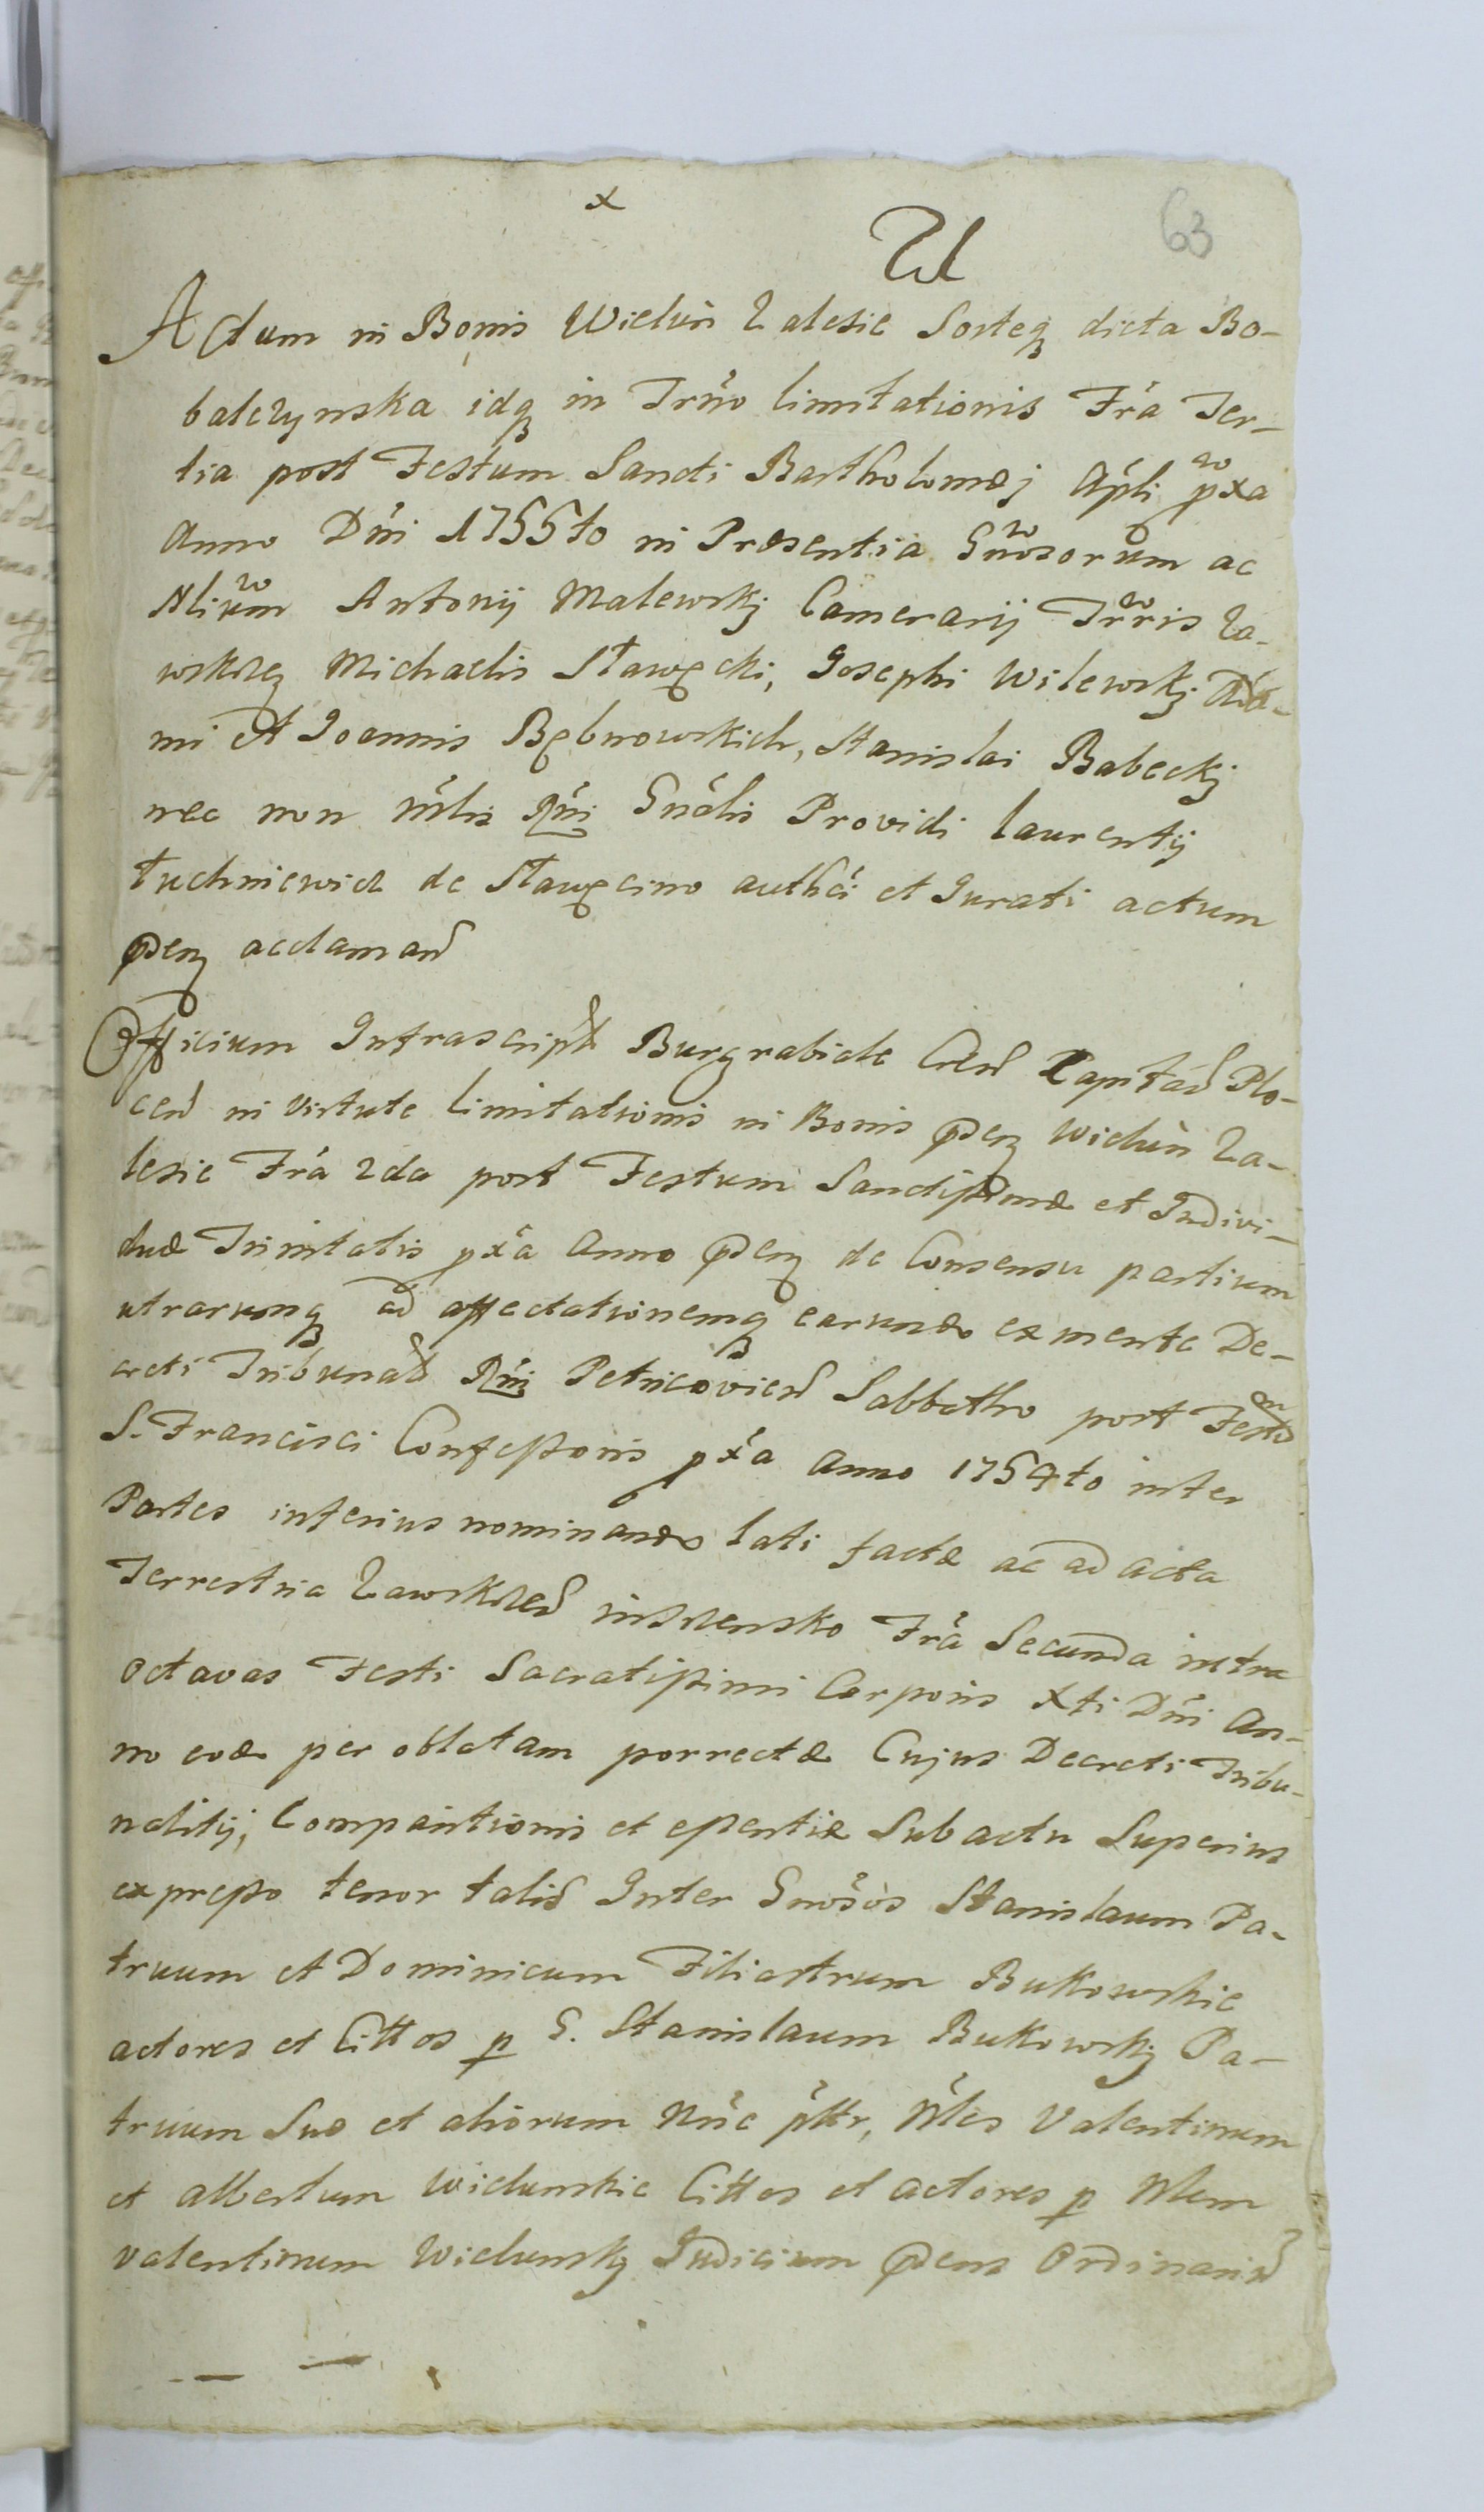 x
63
U
Actum in Bonis Wieluń Zalesie Sorteq dicta Bo-
balczynska idq in Trno limitationis Fra Ter-
tia post Festum Sancti Bartholomæj Apli pxa
Anno Dni 1755to in Præsentia Gnosorum ac
Nlium Antonij Malewskj Camerarij Trris Za-
wskrzeg Michaelis Sławęcki, Josephi Wilewskj Ada-
mi et Joannis Bębnowskich, Stanislai Babeckj
nec non Mlis Rni Gnrlis Providi Laurentij
Łuchniewicz de Sławęcino authci et Jurati actum
pden acclamand
Officium Infrascript Burgrabiale Cren Capitan Plo-
cen in virtute limitationis in Bonis pden Wieluń Za-
lesie Fra 2da post Festum Sanctissimæ et Indivi-
duæ Trinitatis pxa Anno pden de Consensu partium
utrarumq ad affectationemq earunde ex mente De-
creti Tribunal Rni Petricovien Sabbatho post Festum
S. Francisci Confessoris pxa Anno 1754to inter
Partes inferius nominande lati factæ ac ad acta
Terrestria Zawskrzen in Szrensko Fra Secunda intra
Octavas Festi Sacratissimi Corporis Xti Dni An-
no eode per oblatam porrectæ Cujus Decreti Tribu-
nalitij, Comparitionis et essentiæ Sub actu Superius
expresso tenor talis Inter Gnosos Stanislaum Pa-
truum et Dominicum Filiastrum Bukowskie
actores et Cittos p G. Stanislaum Bukowskj Pa-
truum Suo et aliorum Nne pttr, Nles Valentinum
et Albertum Wielunskie Cittos et actores p Nlem
Valentinum Wielunskj Judicium pdens Ordinarium